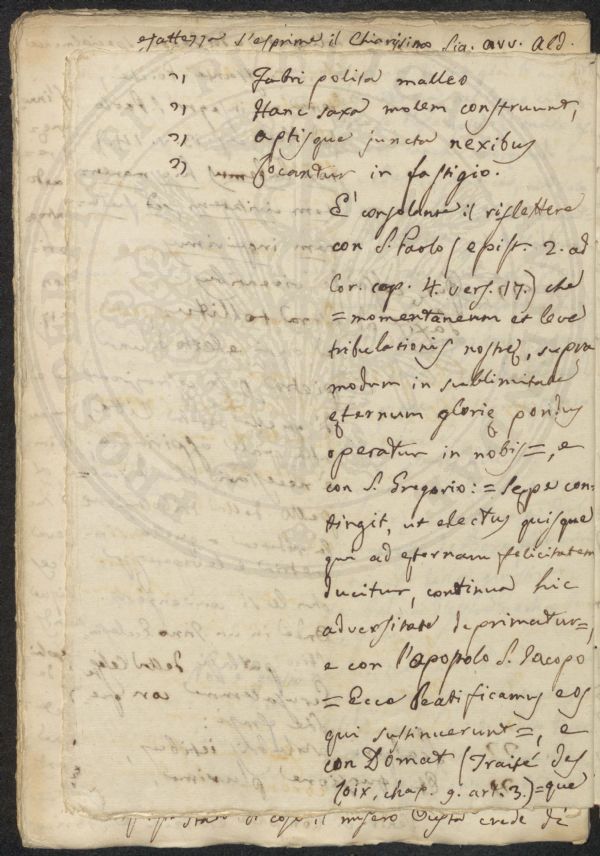 esattezza s'esprime il Chiarissimo Sig. avv. Ald.
" Fabri polita malleo
" Hanc saxa molem construunt,
" aptisque juncta nexibus
" Locantur in fastigio.
E' consolante il riflettere
con S. Paolo (epist. 2. ad
Cor. cap. 4. vers. 17.) che
= momentaneum et leve
tribulationis nostrę, supra
modum in sublimitate
ęternum glorię pondus
operatur in nobis =, e
con S. Gregorio: = Sępe con-
tingit, ut electus quisque
qui ad ęternam felicitatem
ducitur, continua hic
adversitate deprimatur =,
e con l'apostolo S. Jacopo
= Ecce Beatificamus eos
qui sustinuerunt =, e
con Domat (Traité des
loix, chap. 9. art. 3.) = que
di cose il misero crede di